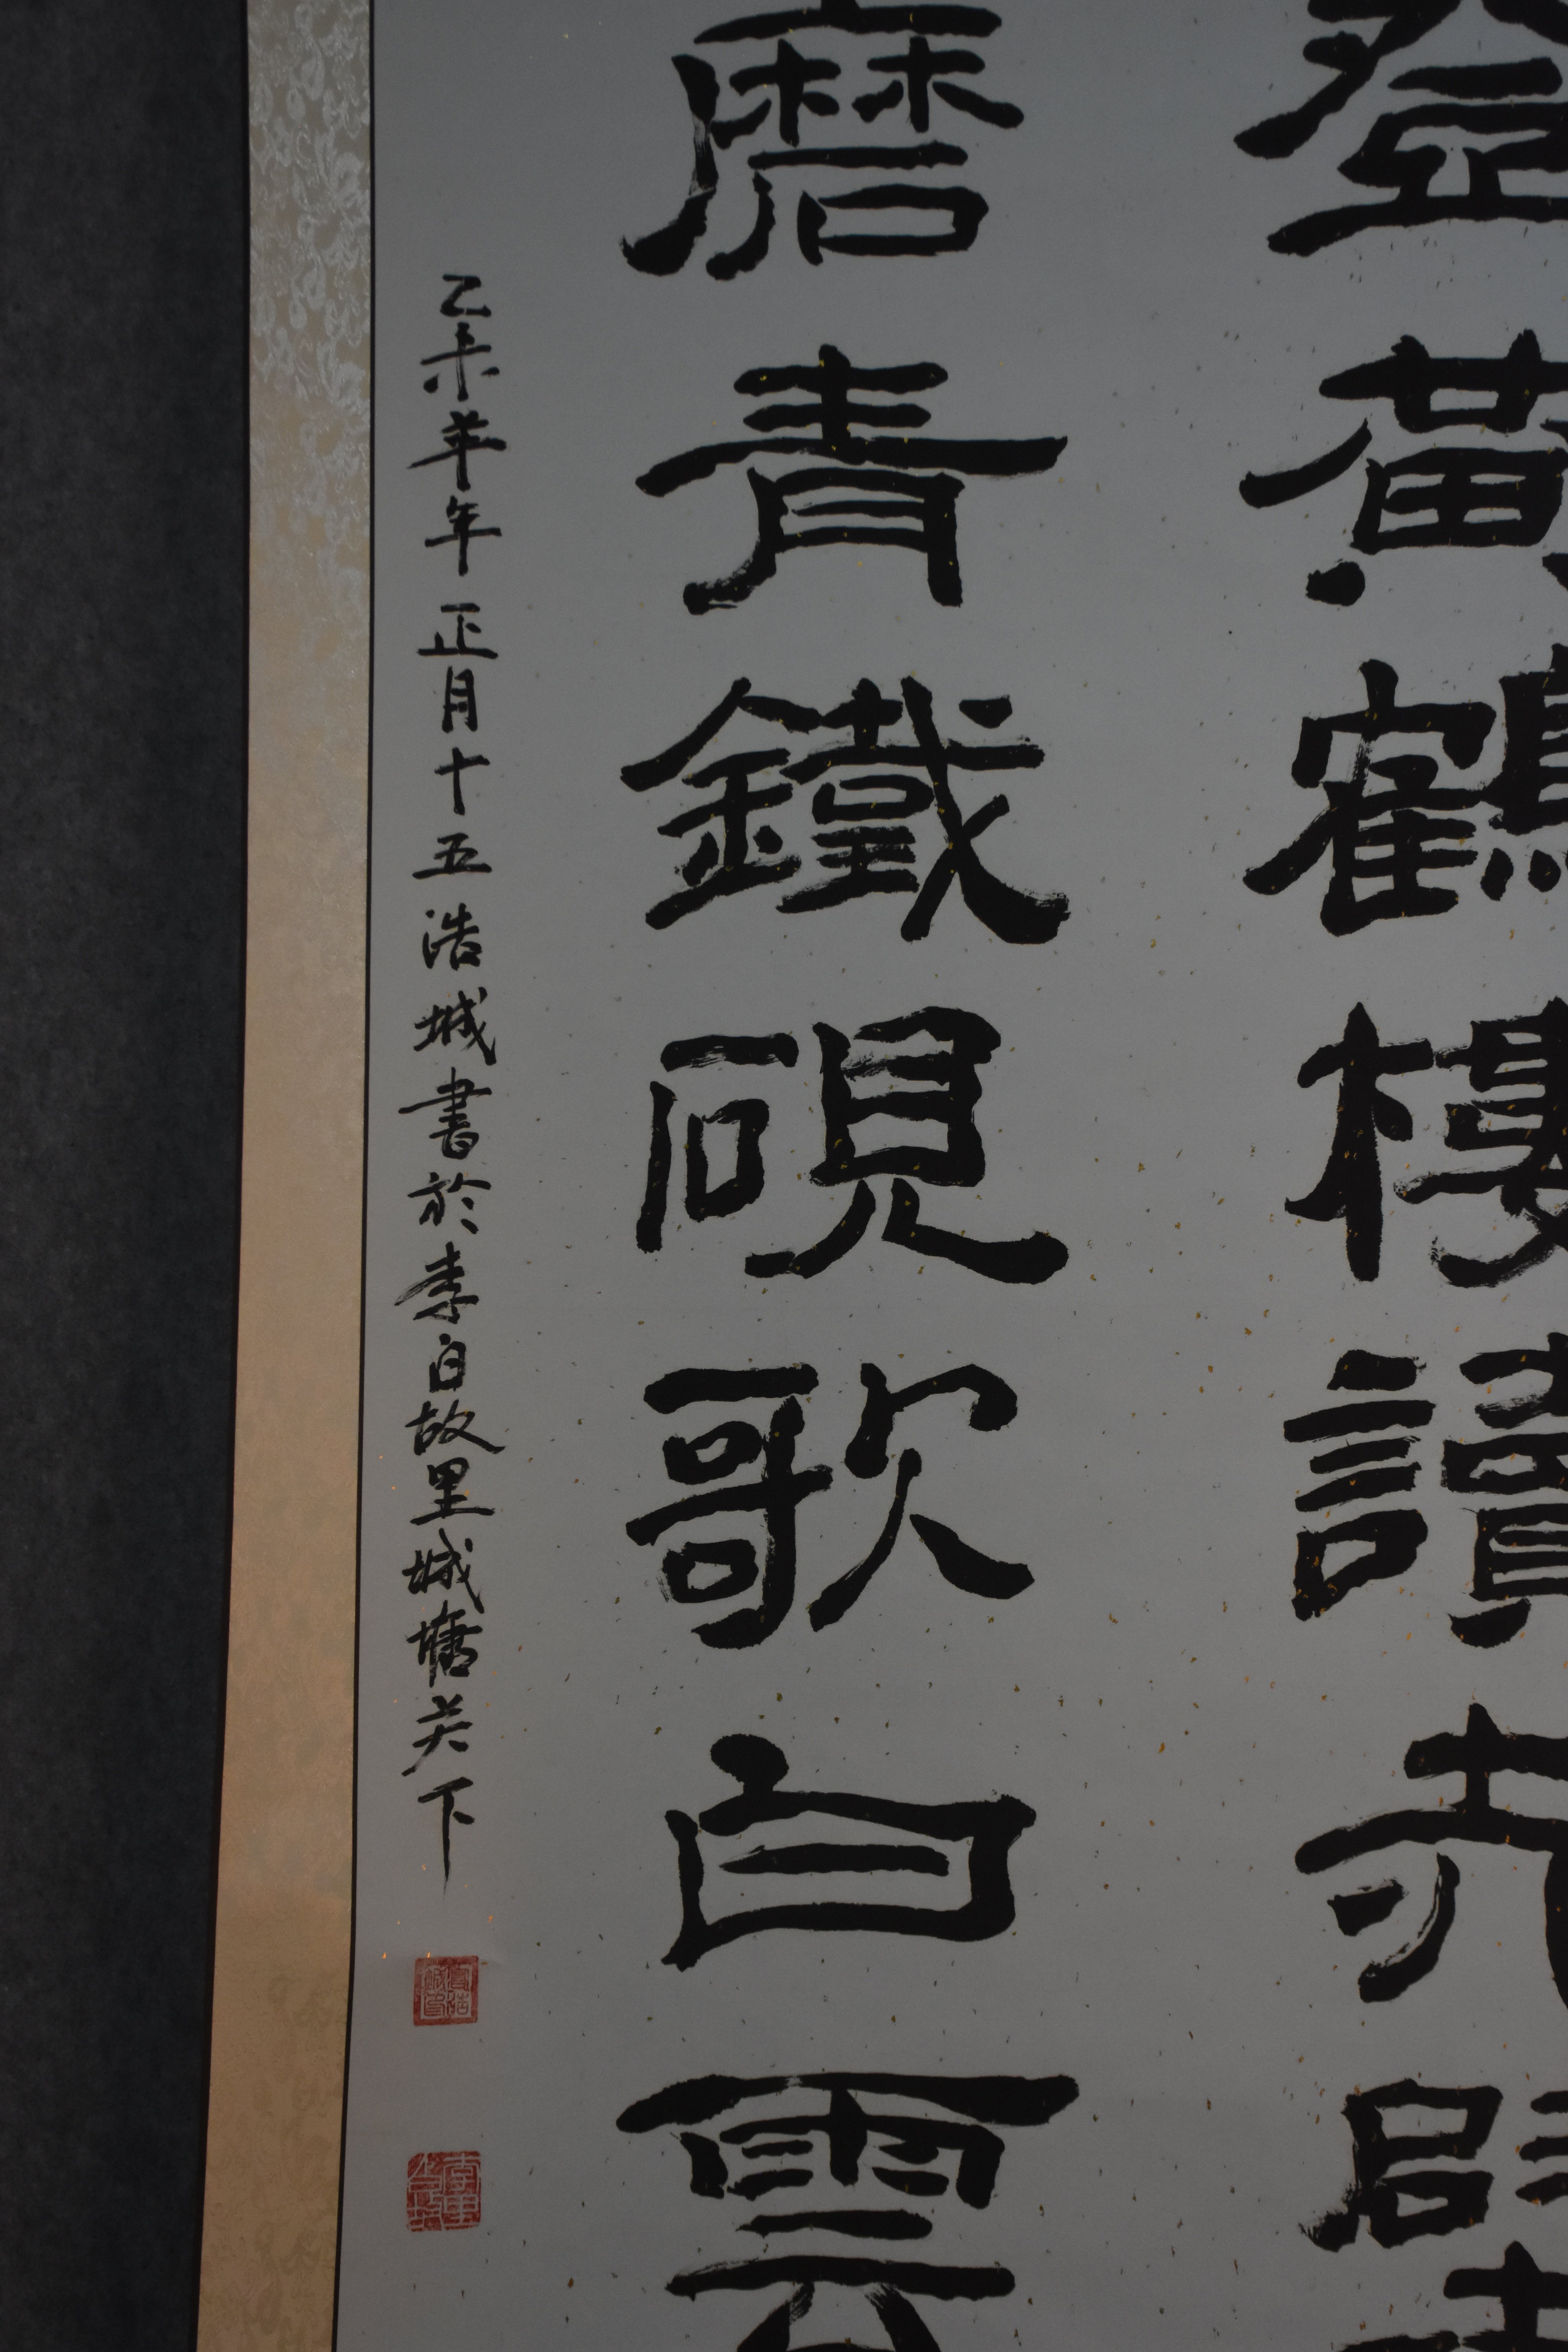 登黃鶴樓讀崔
磨青鐵硯歌白雲
乙未羊年正月十五浩城書於李白故里城墉关下